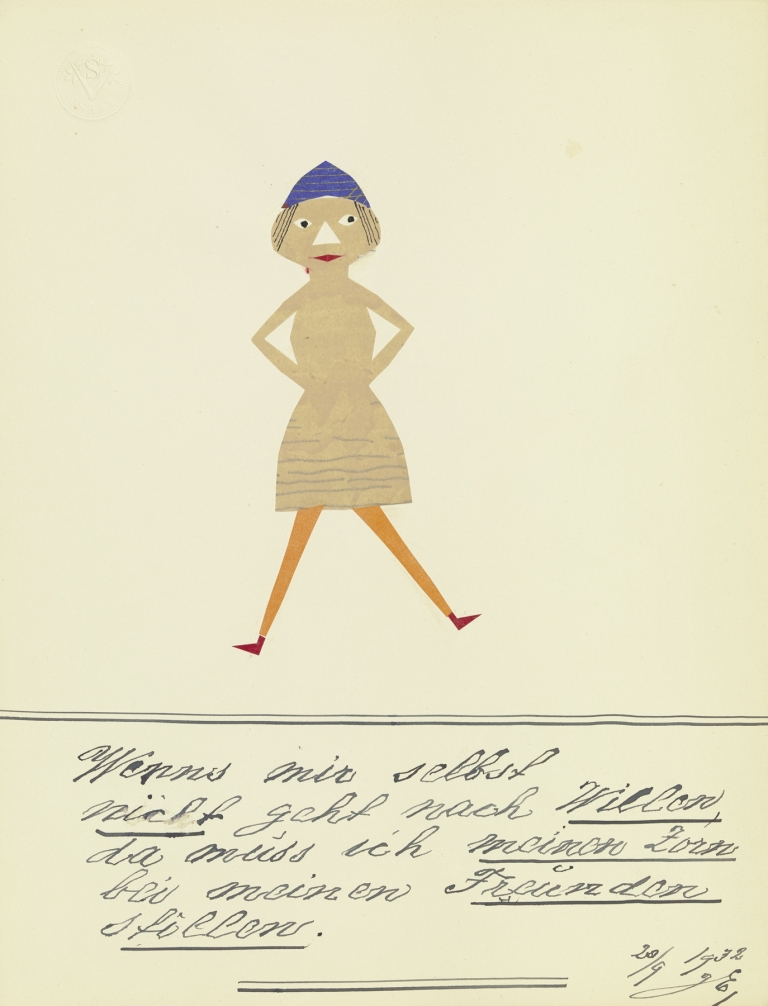 Wenns mir selbst
nicht geht nach Willen,
da müss ich meinen Zorn
bei meinen Freünden
stillen.
20/9 1932